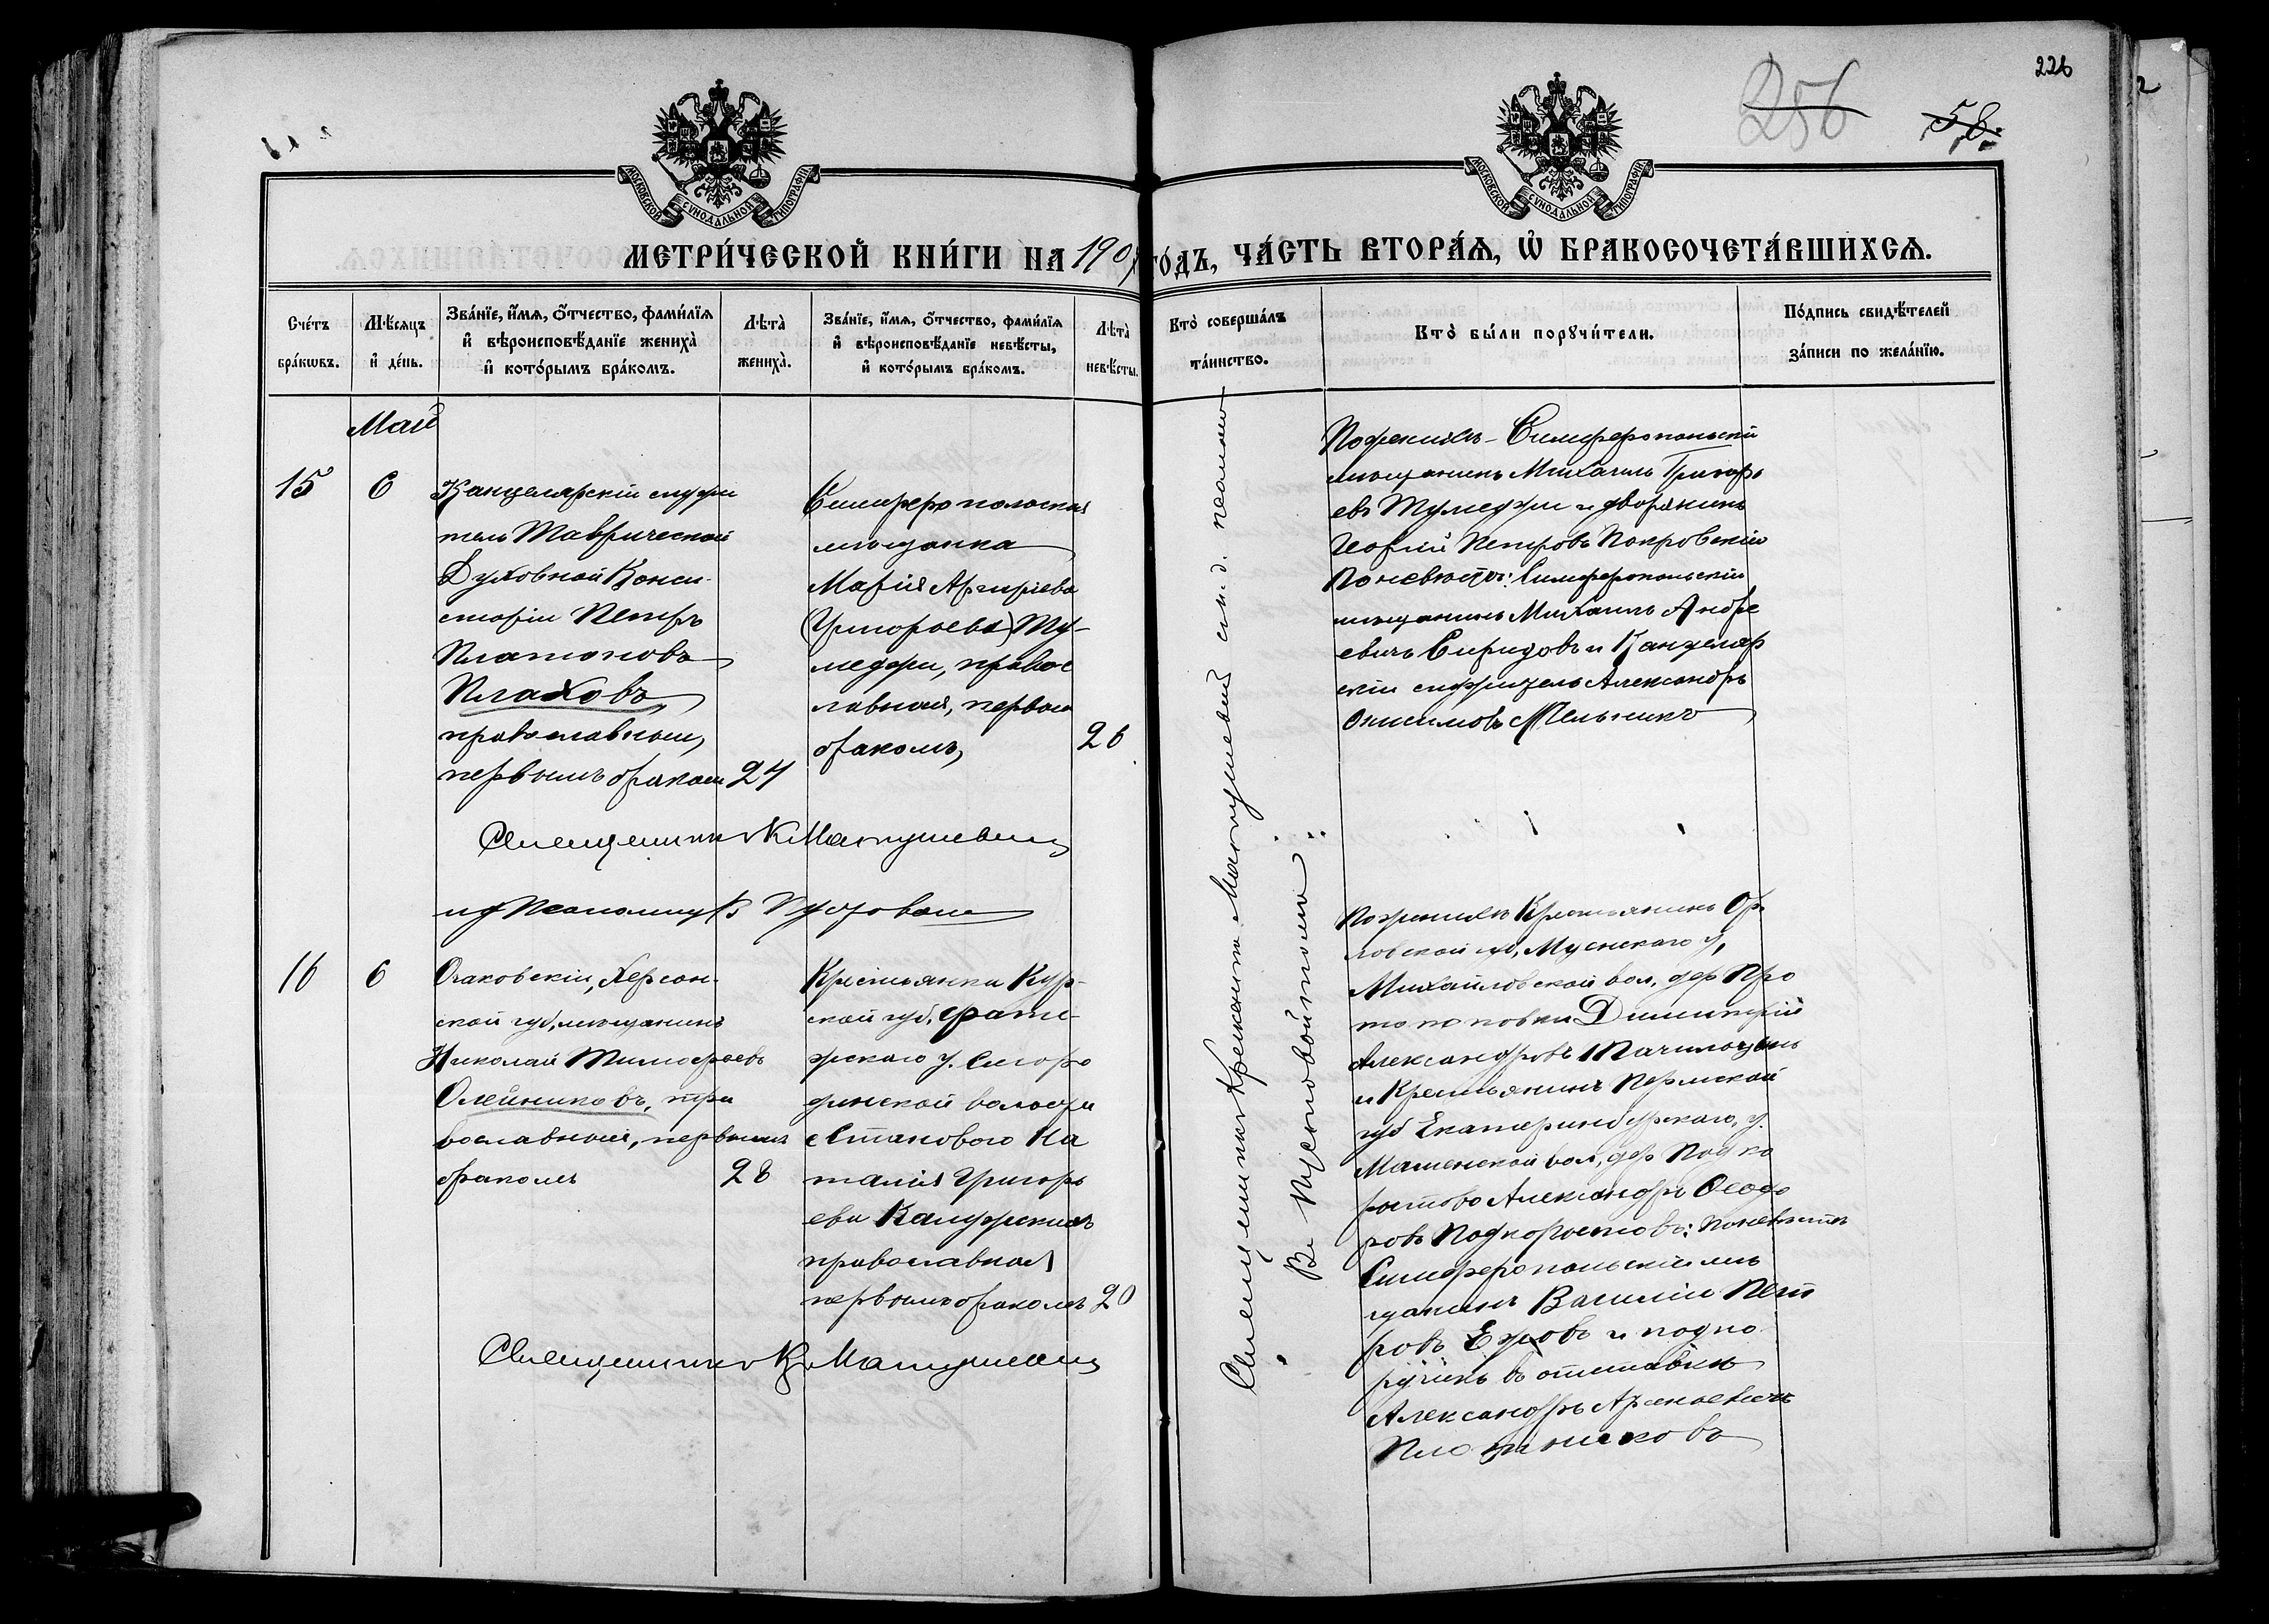 226
256
58.
МОСКОВСКОЙ СѴНОДАЛЬНОЙ ТИПОГРАФІИ
МОСКОВСКОЙ СѴНОДАЛЬНОЙ ТИПОГРАФІИ
МЕТРИ́ЧЕСКОЙ КНИ́ГИ НА 190
ГО́ДЪ, ЧА́СТЬ ВТОРА́Я, Ѡ БРАКОСОЧЕТА́ВШИХСЯ.
Сче́тъ бра́кѡвъ.
Мѣ́сяцъ и҆ де́нь.
Зва́нїе, и҆́мѧ, ѻ҆́тчество, фами́лїѧ и҆ вѣроисповѣ́данїе жениха̀ и҆ кото́рымъ бра́комъ.
Лѣта̀ жениха̀.
Зва́нїе, и҆́мѧ, ѻ҆́тчество, фами́лїѧ и҆ вѣроисповѣ́данїе невѣ́сты, и҆ кото́рымъ бра́комъ.
Лѣта̀ невѣ́сты.
Кто̀ соверша́лъ та́инство.
Кто̀ бы́ли порꙋчи́тели.
По́дпись свидѣ́телей за́писи по жела́нїю.
Май
15
6
Канцелярскій служи
тель Таврической
Духовной Конси-
сторіи Петръ
Платоновъ
Плаховъ,
православный,
первымъ бракомъ 24
Симферопольская
мѣщанка
Марія Аргирьева
(Григорьева) Ту-
меджи, правос
лавная, первымъ
бракомъ,
26
Священникъ К Матушевич
Псаломщикъ
По женихѣ - Симферопольскій
мѣщанинъ Михаилъ Григорь
евъ Тумеджи и дворянинъ
Георгій Петровъ Покровскій
По невѣстѣ: Симферопольскій
мѣщанинъ Михаилъ Андре
евичъ Спиридовъ и Канцеляр
скій служитель Александръ
Онисимовъ Мельникъ
Священникъ Климентъ Матушевичъ
16
6
Очаковскій, Херсон-
ской губ, мѣщанинъ
Николай Тимофеевъ
Олейниковъ, пра
вославный, первымъ
бракомъ
28
Крестьянка Кур-
ской губ. Фате-
жскаго у.
динской волости
На
талія Григорь
ева
православная
первымъ бракомъ 20
Священникъ К Матушевич
По женихѣ Крестьянинъ Ор
ловской губ, Мценскаго у,
Михайловской вол, дер Про
топоповки Димитрій
Александровъ
и Крестьянинъ Пермской
губ Екатеринбургскаго, у.
вол, дер Подко
рытово Александръ Феодо
ровъ Подкорытовъ: По невѣстѣ
Симферопольскій мѣ
щанинъ Василій Пет
ровъ Ежовъ и подпо
ручикъ въ отставкѣ
Александръ Арсеньевичъ
Плотниковъ